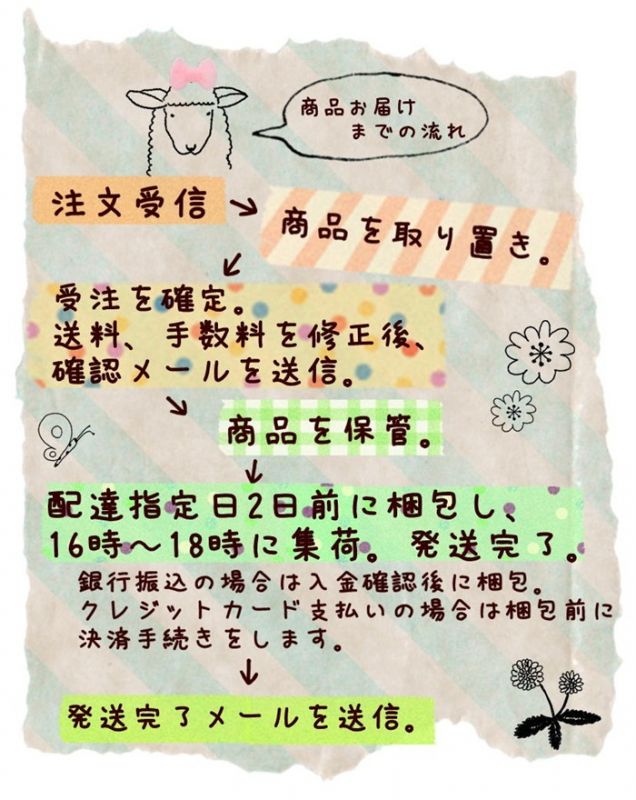 商品お届け
までの流れ
注文受信
商品を取り置き。
受注を確定。
送料、手数料を修正後、
確認メールを送信。
商品を保管。
配達指定日2日前に梱包し、
16時～18時に集荷。発送完了。
銀行振込の場合は入金確認後に梱包。
クレジットカード支払いの場合は梱包前に
決済手続きをします。
発送完了メールを送信。